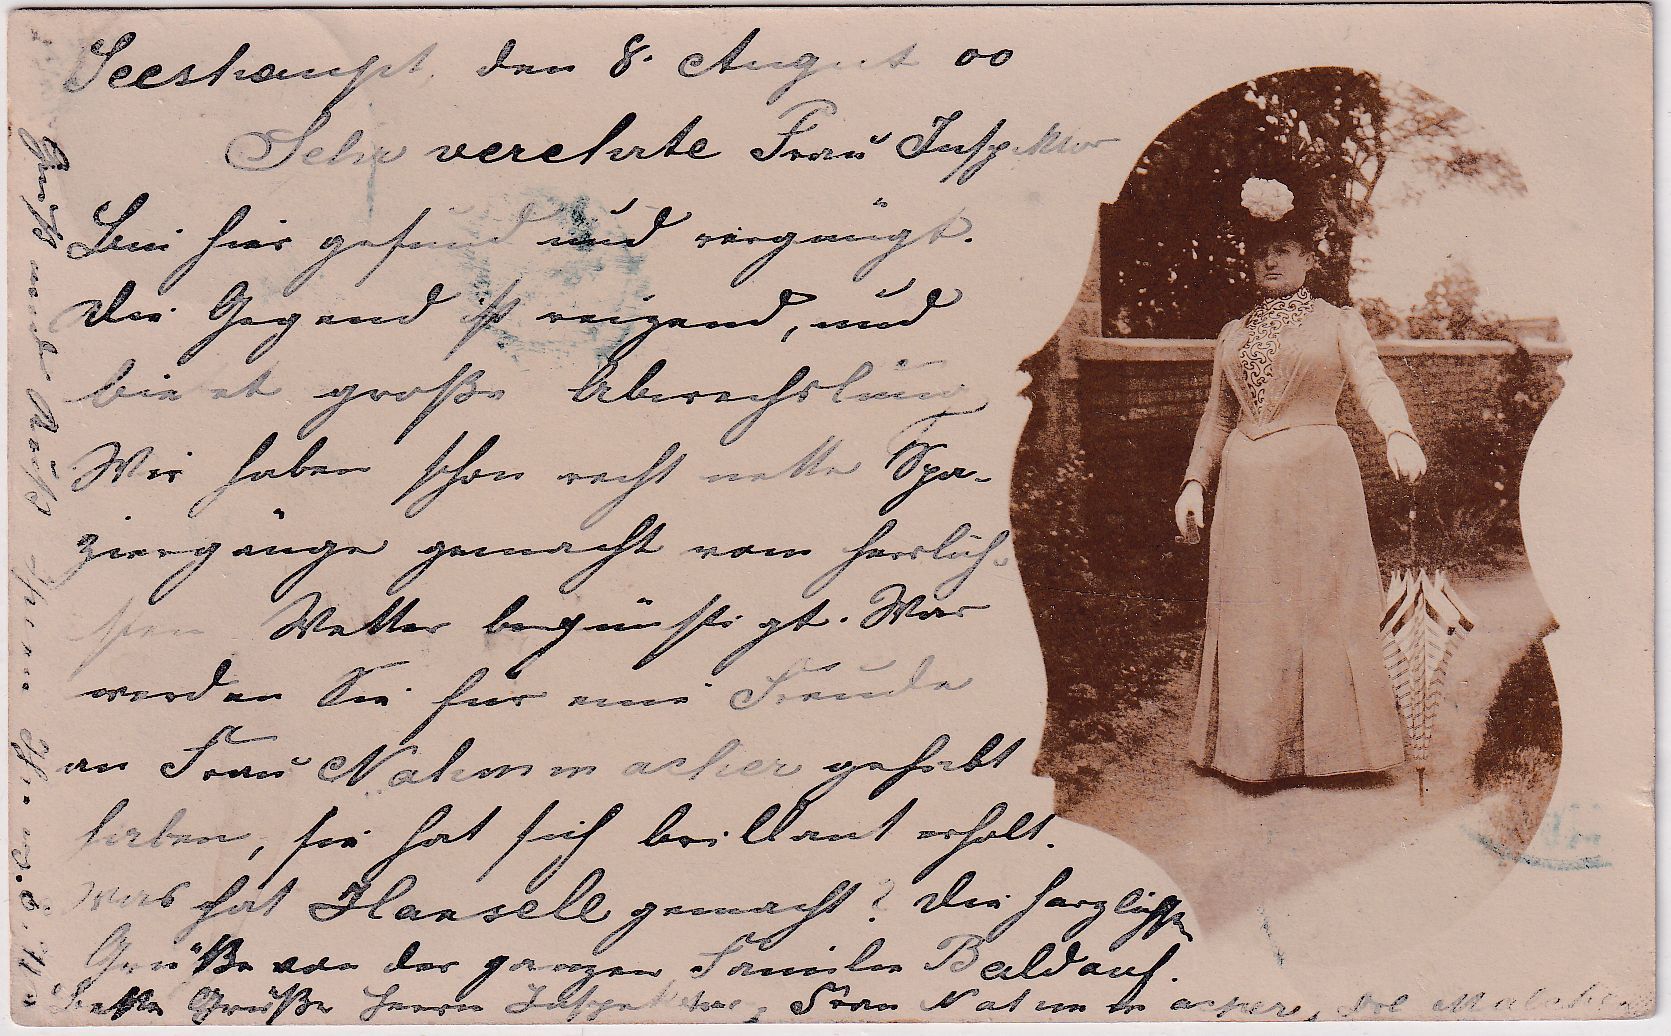 Seeshaupt, den 8. August 00
Sehr verehrte Frau Inspektor
Bin hier gesund und vergnügt.
Die Gegend ist reizend, und
bietet große Abwechslung
Wir haben schon recht nette Spa-
ziergänge gemacht vom herrlich-
sten Wetter begünstigt. Was
werden Sie für eine Freude
an Frau Nahmmacher gehabt
haben, sie hat sich brillant erholt.
Was hat Hansell gemacht? Die herzlichsten
Grüße von der ganzen Familie Baldauf.
Bitte Grüße Herrn Inspektor, Frau Nahmmacher,
Gruß und Kuß Ihnen Ihre